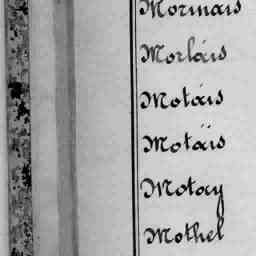 Mormais
Morlais
Motais
Motais
Motay
Mothel